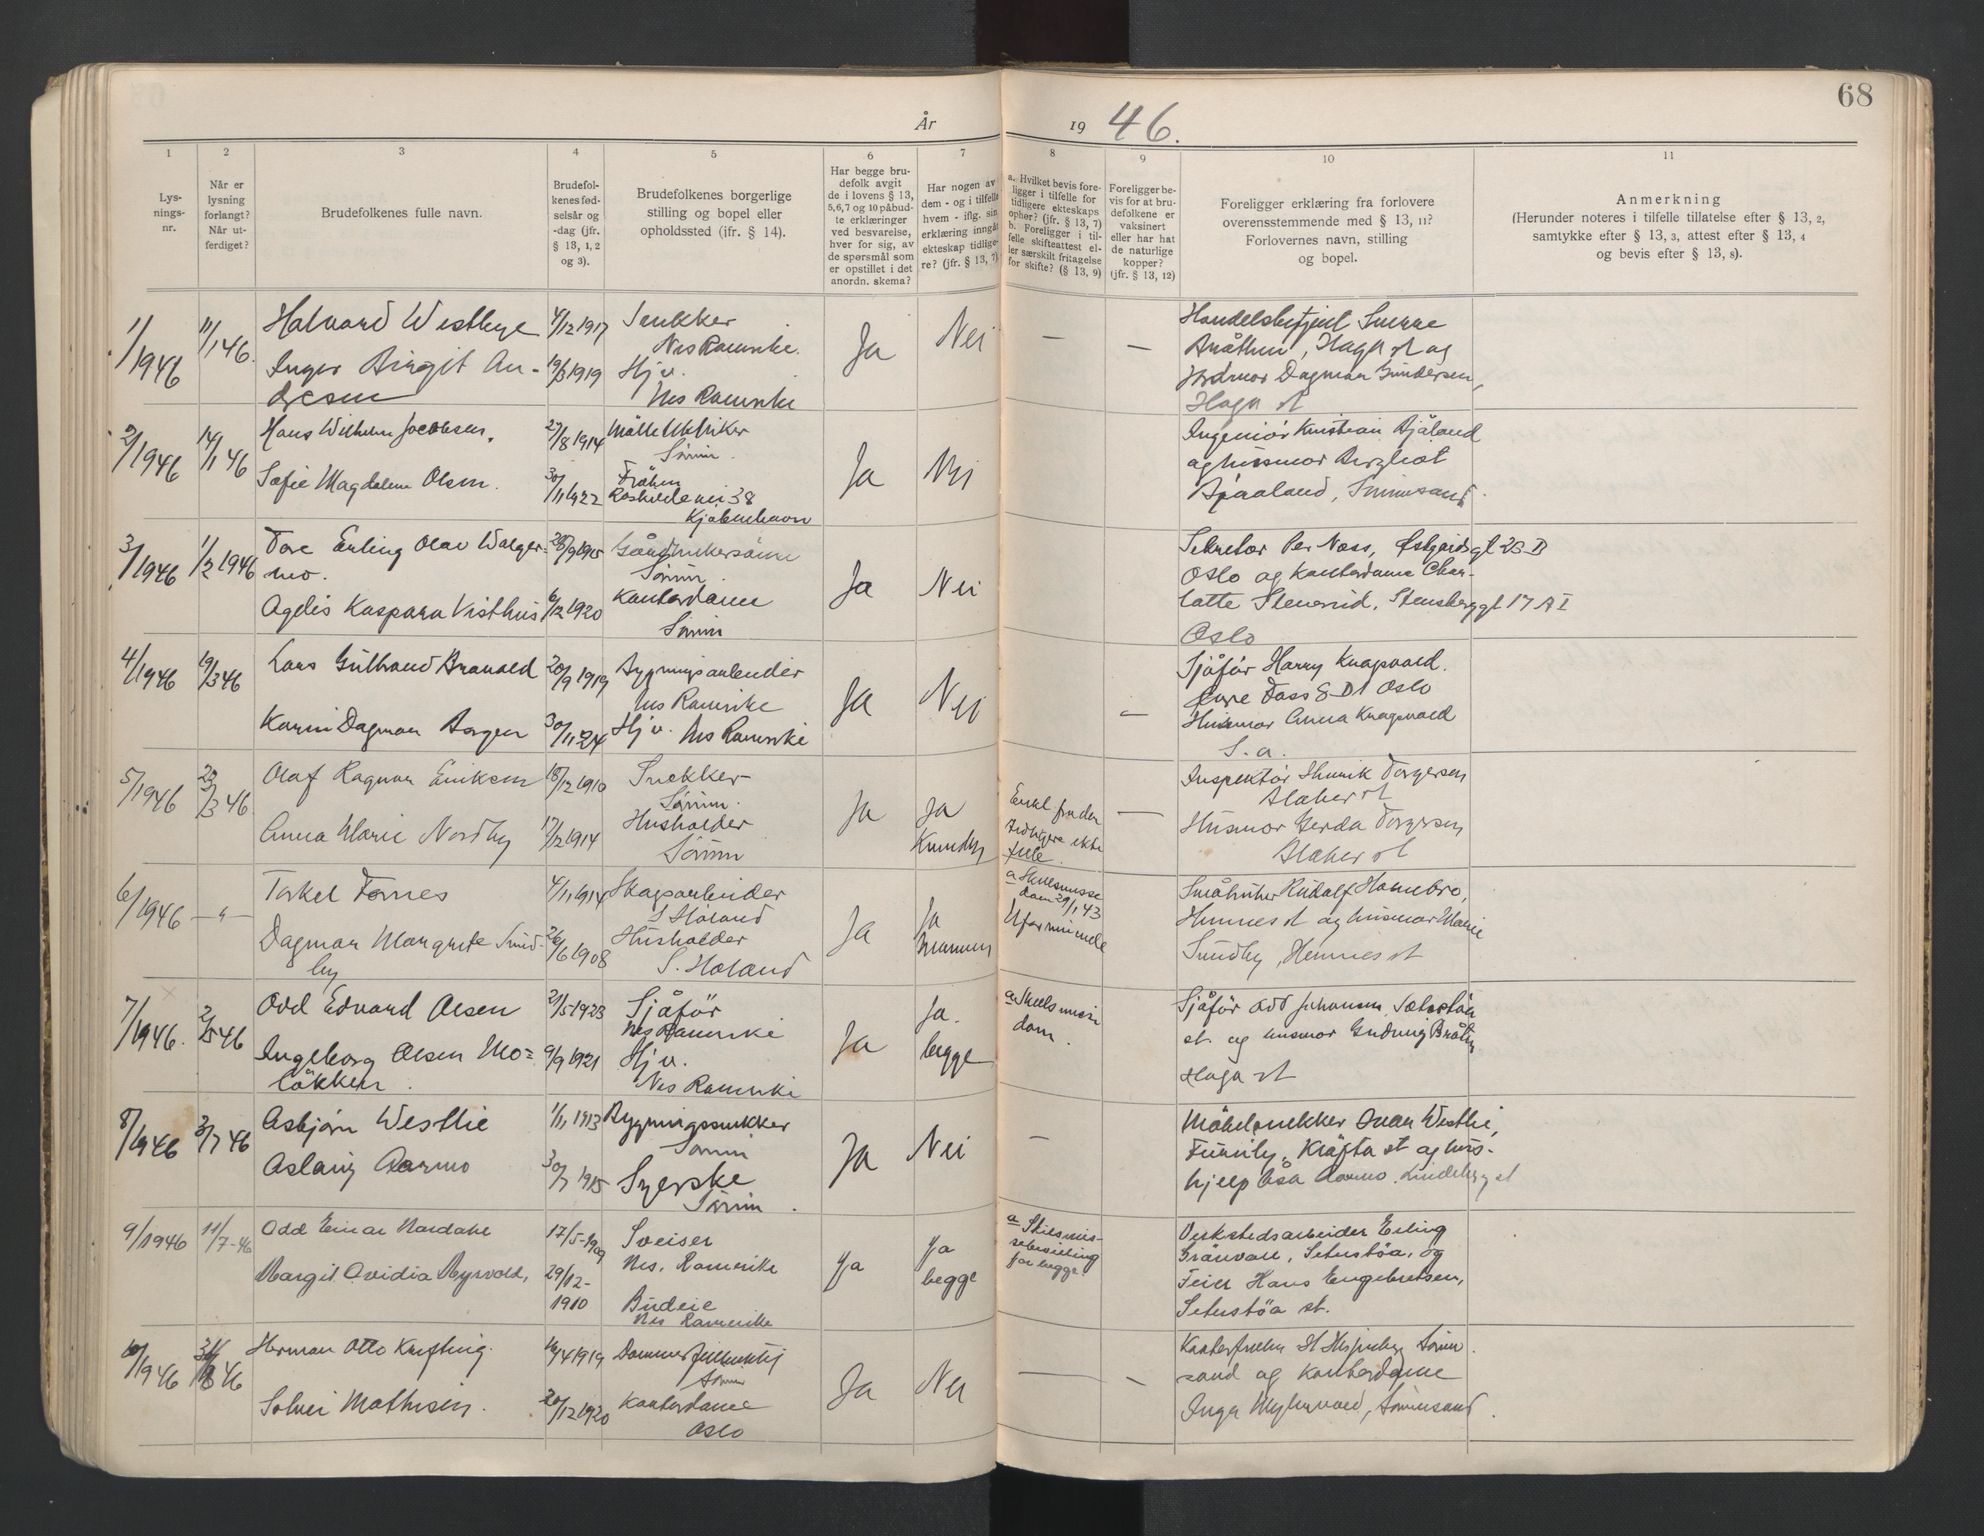 68
År 1946.
1 2 3 4 5 6 7 8 9 10 11
Lys-
nings-
nr.
Når er
lysning
forlangt?
Når ut-
ferdiget?
Brudefolkenes fulle navn.
Brudefol-
kenes fød-
selsår og
-dag (jfr.
§ 13, 1, 2
og 3).
Brudefolkenes borgerlige
stilling og bopel eller
opholdssted (ifr. § 14).
Har begge bru-
defolk avgit
de i lovens § 13,
5,6,7 og 10 påbud-
te erklæringer
ved besvarelse,
hver for sig, av
de spørsmål som
er opstillet i det
anordn. skema?
Har nogen av
dem - og i tilfelle
hvem - iflg. sin
erklæring inngått
ekteskap tidlige-
re? (jfr. § 13, 7)
a. Hvilket bevis fore-
ligger i tilfelle for
tidligere ekteskaps
ophør? (jfr. § 13, 7)
b. Foreligger i til-
felle skifteattest el-
ler særskilt fritagelse
for skifte? (§ 13, 9)
Foreligger be-
vis for at bru-
defolkene er
vaksinert
eller har hat
de naturlige
kopper?
(jfr. § 13, 12)
Foreligger erklæring fra forlovere
overensstemmende med § 13, 11?
Forlovernes navn, stilling
og bopel.
Anmerkning
(Herunder noteres i tilfelle tillatelse efter § 13, 2,
samtykke efter § 13, 3, attest efter § 13, 4
og bevis efter § 13, 8).
1/1946
11/1 46.
Halvard Westbye
Inger Birgit An-
dresen
4/12 1917
19/3 1919
Snekker
Nes Romerike.
Hj v.
Nes Romerike
Ja
Nei
—
—
Handelsbetjent Sverre
Bråthen, Haga st og
Jordmor Dagmar Gundersen,
Haga st
2/1946
14/1 46
Hans Wilhelm Jacobsen.
Sofie Magdalene Olsen.
27/8 1914
30/11 1922
Sørum.
Frøken
Roskildevei 38
Kjøbenhavn
Ja
Nei
Ingeniør Kristian Bjåland
og husmor Bergliot
Bjaaland, Sørumsand.
3/1946
1/2 1946
Tore Erling Olav Valger-
mo.
Agdis Kaspara Visthus
28/9 1915
6/12 1920
Gårdbrukersønn
Sørum.
Kontordame
Sørum
Ja
Nei
Sekretær Per Næss, Østgårdsgt 23 II
Oslo og Kontordame Char-
lotte Stensrud, Stensberggt 17 A I
Oslo
4/1946
19/3 46
Lars Gulbrand Branvold
Karin Dagmar Borgen
20/9 1919
30/11-24
Bygningsarbeider
Nes Romerike
Hj v. Nes Romerike
Ja
Nei
—
Sjåfør Harry Knapvold.
Oslo
Husmor Anna Knapvold
S. a.
5/1946
22/3 46.
Olaf Ragnar Eriksen
Anna Marie Nordby
18/12 1910
17/12 1914
Snekker
Sørum.
Husholder
Sørum
Ja
Ja
—
Inspektør Henrik Torgersen
Blaker st
Husmor Gerda Torgersen
Blaker st
6/1946
— " —
Torkel Fornes
Dagmar Margrete Sund-
by
4/11 1914
26/6 1908
Skogsarbeider
S Høland
Husholder
S. Høland
Ja
Ja
a Skilsmisse
dom 29/1 43
Uformuende
Småbruker Rudolf Hamnbro,
Hemnes st og husmor Marie
Sundby, Hemnes st
7/1946.
2/5 46
Odd Edvard Olsen
Ingeborg Olsen Mo=
løkken.
21/5 1923
9/9 1921
Sjåfør
Nes Romerike
Hj v.
Nes Romerike
Ja
Ja.
begge
a Skilsmisse
dom.
Sjåfør Odd Johansen, Seterstøa
st. og husmor Gudrun Bråten
Haga st
8/1946
3/7 46
Asbjørn Westlie
Aslaug Aarmo
1/1 1913
30/7 1915
Bygningssnekker
Sørum
Syerske
Sørum.
Ja
Nei
—
Møbelsnekker Einar Westlie,
Furuly, Kløfta st og hus-
hjelp Åsa Aarmo, Lindeberg st
9/1946
11/7-46
Odd Einar Nordahl
Margit Ovidia Myrvold,
17/5-1909
29/12-
1910
Sveiser
Nes, Romerike
Budeie
Nes Romerike
Ja
Ja
begge
a Skilsmis-
sebevilling
for begge.
Verkstedsarbeider Erling
Grønvold, Seterstøa, og
Feier Hans Engebretsen,
Seterstøa st.
10/1946
31/8 46
Herman Otto Knefting.
Solvei Mathisen.
16/4 1919
20/12 1920
Dommerfullmektig
Sørum
Kontordame
Oslo
Ja
Nei
—
—
Sørum-
sand og kontordame
Inger Myhrvold, Sørumsand.